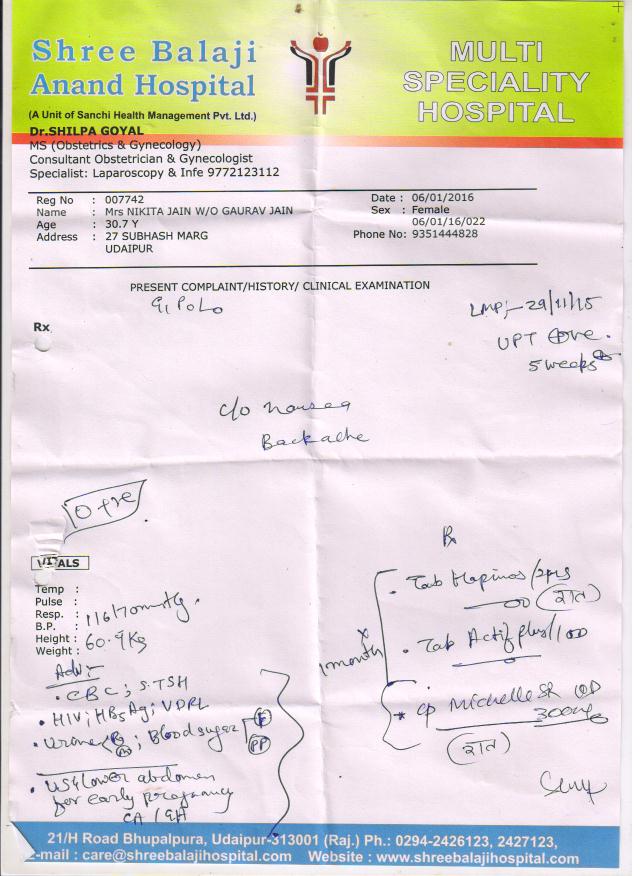 Shree Balaji
Anand Hospital
(A Unit of Sanchi Health Management Pvt. Ltd.)
MULTI
SPECIALITY
HOSPITAL
Dr.SHILPA GOYAL
MS (Obstetrics & Gynecology)
Consultant Obstetrician & Gynecologist
Specialist: Laparoscopy & Infe 9772123112
Reg No : 007742
Name : Mrs NIKITA JAIN W/O GAURAV JAIN
Age : 30.7 Y
Address : 27 SUBHASH MARG
UDAIPUR
Date : 06/01/2016
Sex : Female
06/01/16/022
Phone No: 9351444828
PRESENT COMPLAINT/HISTORY/ CLINICAL EXAMINATION
G1 P0 L0
LMP;- 29/11/15
Rx
UPT +ve.
5 weeks
c/o nausea
Backache
O +ve
VITALS
Temp :
Pulse :
Resp. :
B.P. : 116/70mmHg.
Height :
Weight : 60.9Kg
Adv:-
• CBC; S.TSH
• HIV; HBsAg; VDRL
• Urine R/M; Blood sugar F PP
• USG lower abdomen
for early pregnancy
Rx
1 month x
• Tab
(रात)
• Tab Actif plus/1 OD
* cp OD
300mg
(रात)
21/H Road Bhupalpura, Udaipur-313001 (Raj.) Ph.: 0294-2426123, 2427123,
E-mail : care@shreebalajihospital.com Website : www.shreebalajihospital.com